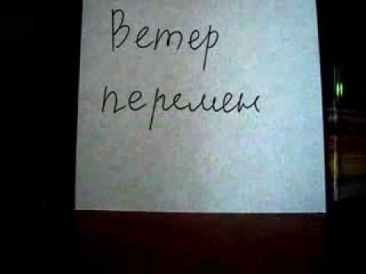 Ветер
перемен